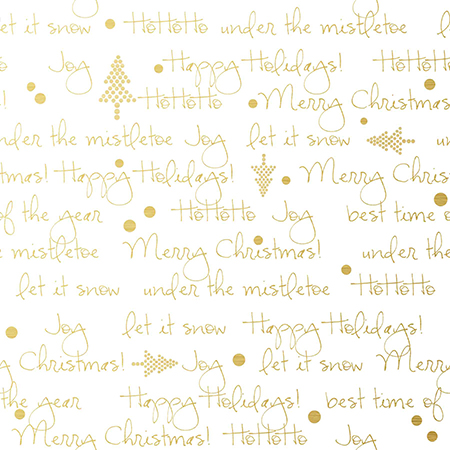 let it snow HoHoHo under the mistletoe
Joy Happy Holidays! HoHoHo
HoHoHo Merry Christmas
under the mistletoe Joy let it snow un
Christmas! Happy Holidays! Merry Chris
of the year HoHoHo Joy best time of
mistletoe Merry Christmas! under the
let it snow under the mistletoe HoHoHo
Joy let it snow Happy Holidays!
y Christmas! Joy let it snow Merry
the year Happy Holidays! best time of
Merry Christmas! HoHoHo Joy